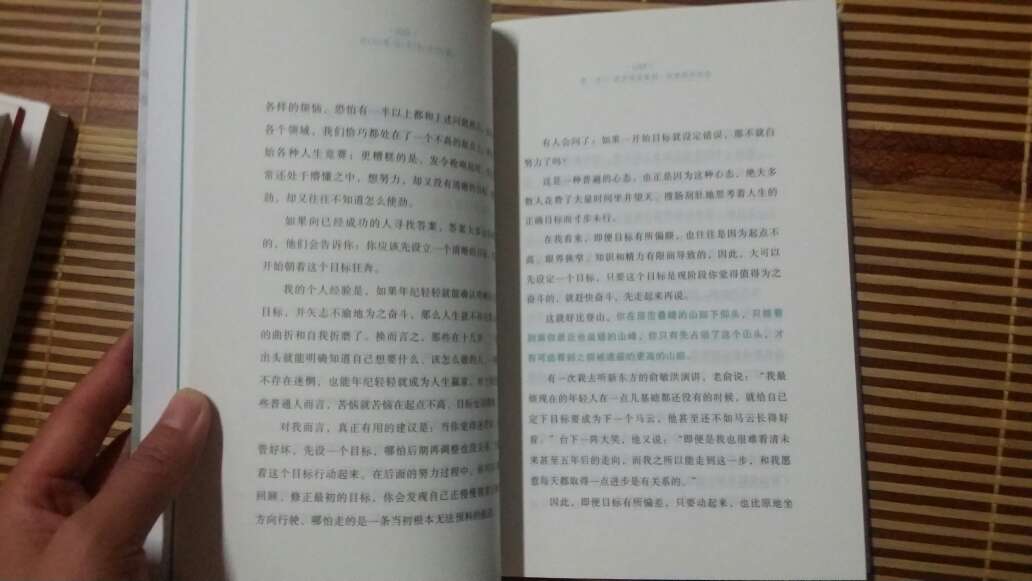 各样的烦恼，恐怕有一半以上都和上述问题
各个领域，我们恰巧都处在了一个不高的起点
始各种人生竞赛；更糟糕的是，发令枪响起
常还处于懵懂之中，想努力，却又没有清晰的目标
劲，却又往往不知道怎么使劲。
如果向已经成功的人寻找答案，答案大多
的，他们会告诉你：你应该先设立一个清晰的目标
开始朝着这个目标狂奔。
我的个人经验是，如果年纪轻轻就能确认
目标，并矢志不渝地为之奋斗，那么人生就
的曲折和自我折磨了。换而言之，那些在十几岁
出头就能明确知道自己想要什么、该怎么做的人
不存在迷惘，也能年纪轻轻就成为人生赢家。
些普通人而言，苦恼就苦恼在起点不高、目标
对我而言，真正有用的建议是：当你觉得迷茫
管好坏，先设一个目标，哪怕后期再调整也没关系
着这个目标行动起来。在后面的努力过程中，
回顾、修正最初的目标，你会发现自己正慢慢
方向行驶，哪怕走的是一条当初根本无法预料的
有人会问了：如果一开始目标就设定错误，那不就白
努力了吗？
这是一种普遍的心态，也正是因为这种心态，绝大多
数人花费了大量时间坐井望天、搜肠刮肚地思考着人生的
正确目标而寸步未行。
在我看来，即便目标有所偏颇，也往往是因为起点不
高、眼界狭窄、知识和精力有限而导致的，因此，大可以
先设定一个目标，只要这个目标是现阶段你觉得值得为之
奋斗的，就赶快奋斗，先走起来再说。
这就好比登山，你在层峦叠嶂的山脚下仰头，只能看
到离你最近他最矮的山峰，你只有先占领了这个山头，才
有可能看到之前被遮蔽的更高的山巅。
有一次我去听新东方的俞敏洪演讲，老俞说：“我最
烦现在的年轻人在一点儿基础都还没有的时候，就给自己
定下目标要成为下一个马云，他甚至还不如马云长得好
看。”台下一阵大笑，他又说：“即便是我也很难看清未
来甚至五年后的走向，而我之所以能走到这一步，和我愿
意每天都取得一点进步是有关系的。”
因此，即便目标有所偏差，只要动起来，也比原地坐